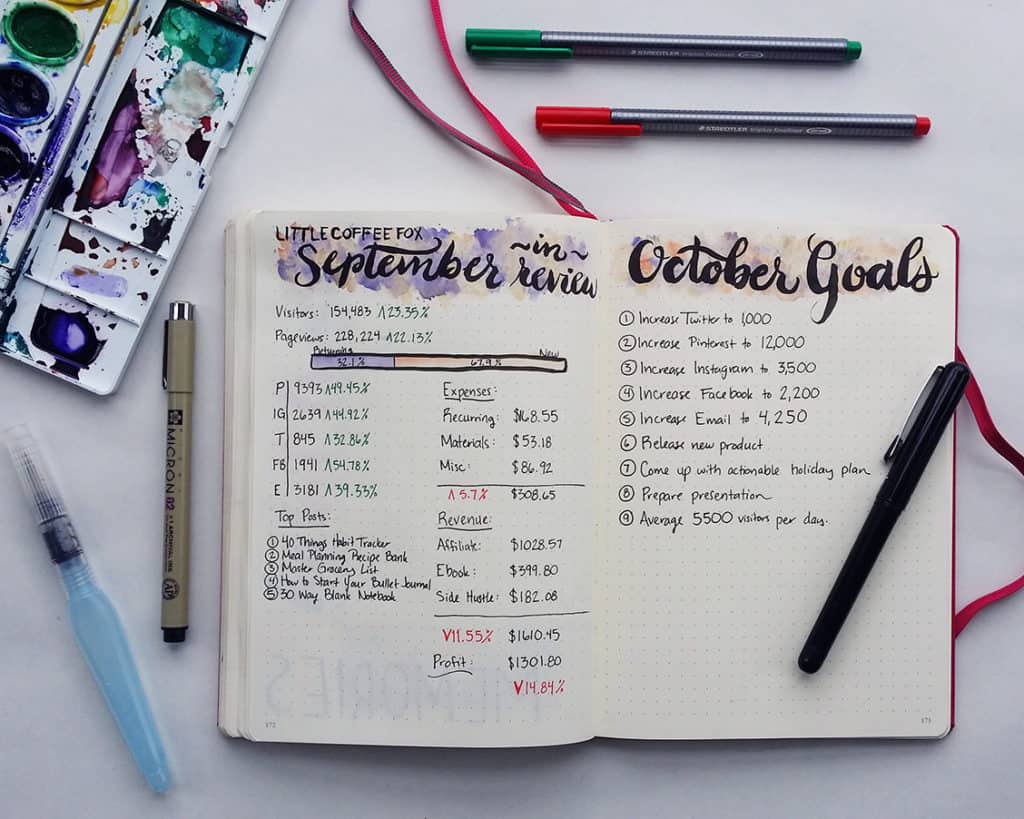 STAEDTLER triplus fineliner
STAEDTLER triplus fineliner
LITTLE COFFEE FOX
September ~in~ review
Visitors: 154,483 ᴧ23.35%
Pageviews: 228,224 ᴧ22.13%
Returning New
32.1% 67.9%
P 9393 ᴧ49.45%
IG 2639 ᴧ44.92%
T 845 ᴧ32.86%
FB 1941 ᴧ54.78%
E 3181 ᴧ39.33%
Top Posts:
① 40 Things Habit Tracker
② Meal Planning Recipe Bank
③ Master Grocery List
④ How to Start Your Bullet Journal
⑤ 30 Way Blank Notebook
Expenses:
Recurring: $168.55
Materials: $53.18
Misc: $86.92
ᴧ5.7% $308.65
Revenue:
Affiliate: $1028.57
Ebook: $399.80
Side Hustle: $182.08
V11.55% $1610.45
Profit: $1301.80
V14.84%
MEMORIES
172
October Goals
① Increase Twitter to 1,000
② Increase Pinterest to 12,000
③ Increase Instagram to 3,500
④ Increase Facebook to 2,200
⑤ Increase Email to 4,250
⑥ Release new product
⑦ Come up with actionable holiday plan
⑧ Prepare presentation
⑨ Average 5500 visitors per day.
173
MICRON 02